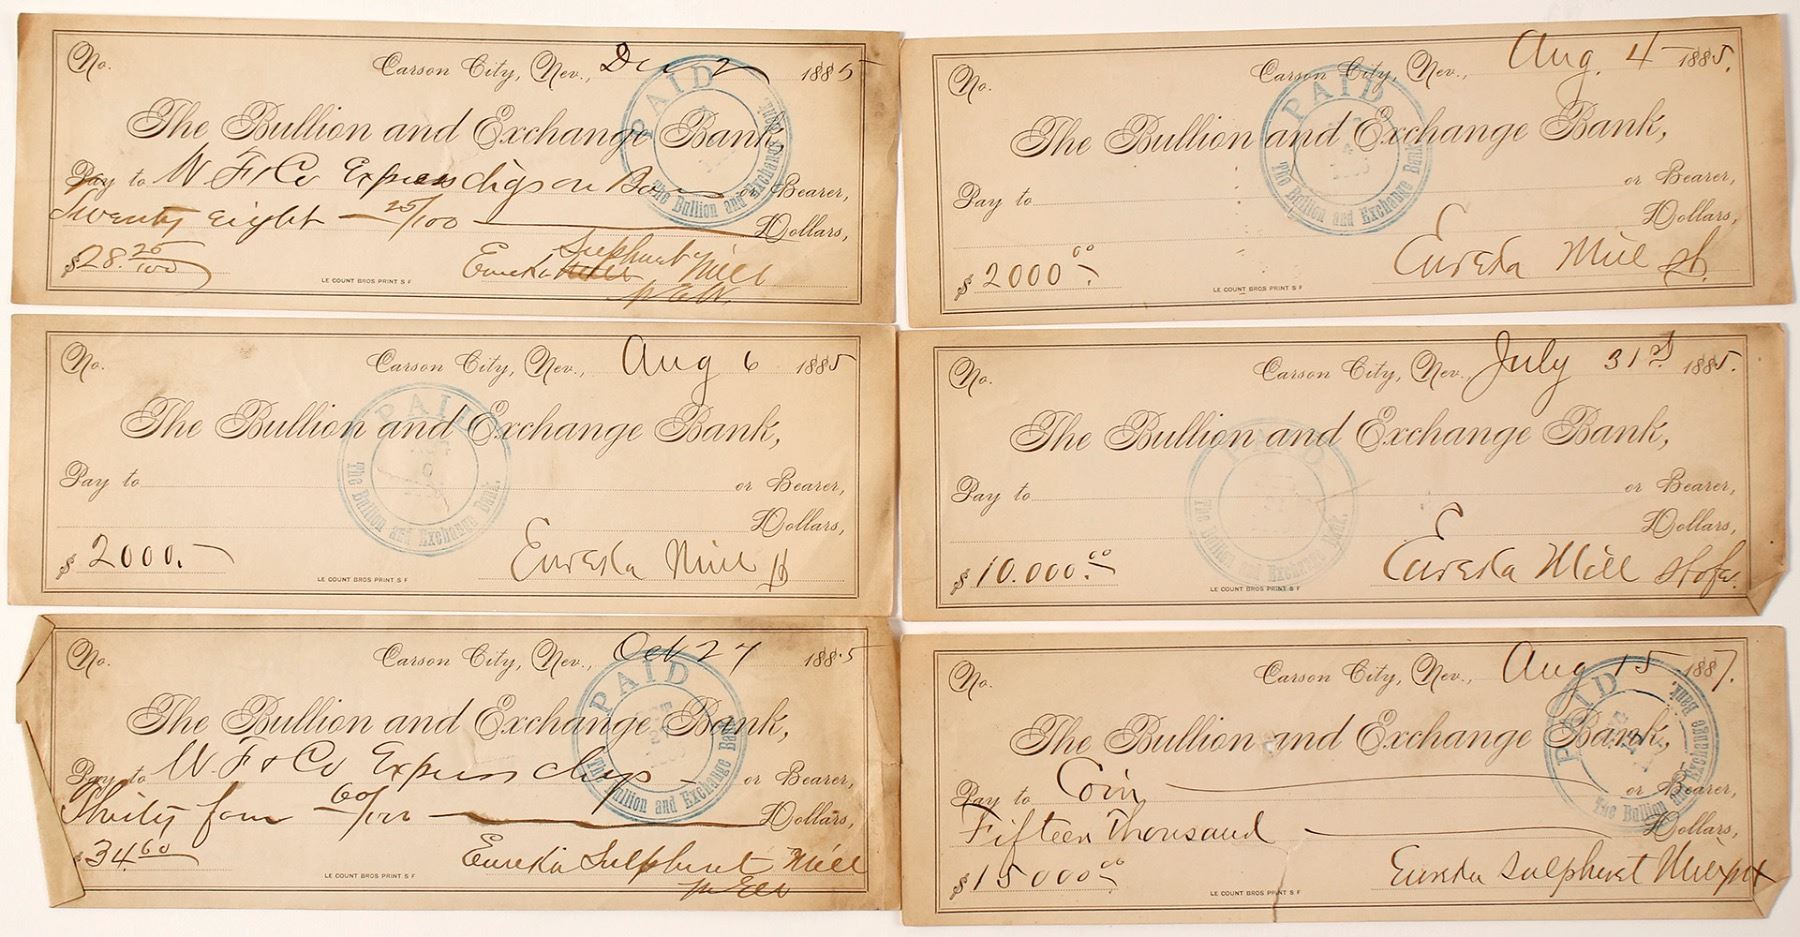 No. Carson City, Nev., Dec 2 1885
The Bullion and Exchange Bank,
Pay to W. F & Co Express chgs on or Bearer,
Twenty eight 25/100 Dollars,
$28.25/100
Eureka Sulphuret Mill
LE COUNT BROS PRINT S F
PAID
The Bullion and Exchange Bank.
No. Carson City, Nev., Aug. 4 1885.
The Bullion and Exchange Bank,
Pay to or Bearer,
Dollars,
$2000.00
Eureka Mill
LE COUNT BROS PRINT S F
PAID
The Bullion and Exchange Bank.
No. Carson City, Nev., Aug 6 1885
The Bullion and Exchange Bank,
Pay to or Bearer,
Dollars,
$2000.
Eureka Mill
LE COUNT BROS PRINT S F
PAID
The Bullion and Exchange Bank.
No. Carson City, Nev., July 31st. 1885.
The Bullion and Exchange Bank,
Pay to or Bearer,
Dollars,
$10.000.00
Eureka Mill
LE COUNT BROS PRINT S F
PAID
The Bullion and Exchange Bank.
No. Carson City, Nev., Oct 27 1885
The Bullion and Exchange Bank,
Pay to W. F & Co Express chgs or Bearer,
Thirty four 60/100 Dollars,
$34.60
Eureka Sulphuret Mill
LE COUNT BROS PRINT S F
PAID
The Bullion and Exchange Bank.
No. Carson City, Nev., Aug 15 1887.
The Bullion and Exchange Bank,
Pay to Coin or Bearer,
Fifteen Thousand Dollars,
$15000.00
Eureka Sulphuret Mill
LE COUNT BROS PRINT S F
PAID
The Bullion and Exchange Bank.